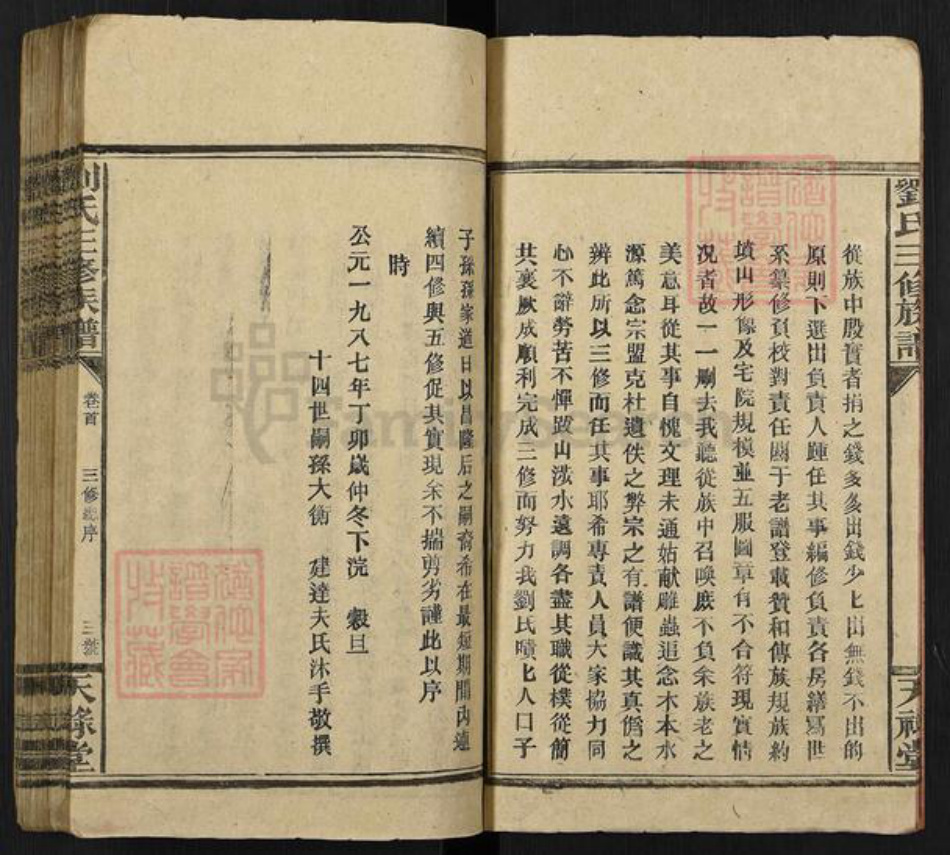 劉氏三修族譜
天祿堂
從族中殷實者捐之錢多多出錢少匕出無錢不出的
原則下選出負責人踵任其事編修負責各房繕寫世
系纂修負校對責任關于老譜登載贊和傳族規族約
墳山形像及宅院規模並五服圖章有不合符現實情
況者故一一刪去我聽從族中召喚庶不負余族老之
美意耳從其事自愧文理未通姑献雕蟲追念木本水
源篤念宗盟克杜遺佚之弊宗之有譜便識其真僞之
辨此所以三修而任其事耶希專責人員大家協力同
心不辭勞苦不憚跋山涉水遠調各盡其職從樸從簡
共襄厥成順利完成三修而努力我劉氏噴匕人口子
子孫孫家道日以昌隆后之嗣裔希在最短期間内連
續四修與五修促其實現余不揣剪劣謹此以序
時
公元一九八七年丁卯歲仲冬下浣 穀旦
十四世嗣孫大衡 建達夫氏沐手敬撰
劉氏三修族譜
卷首
三修譜序
三
天祿堂
FamilySearch